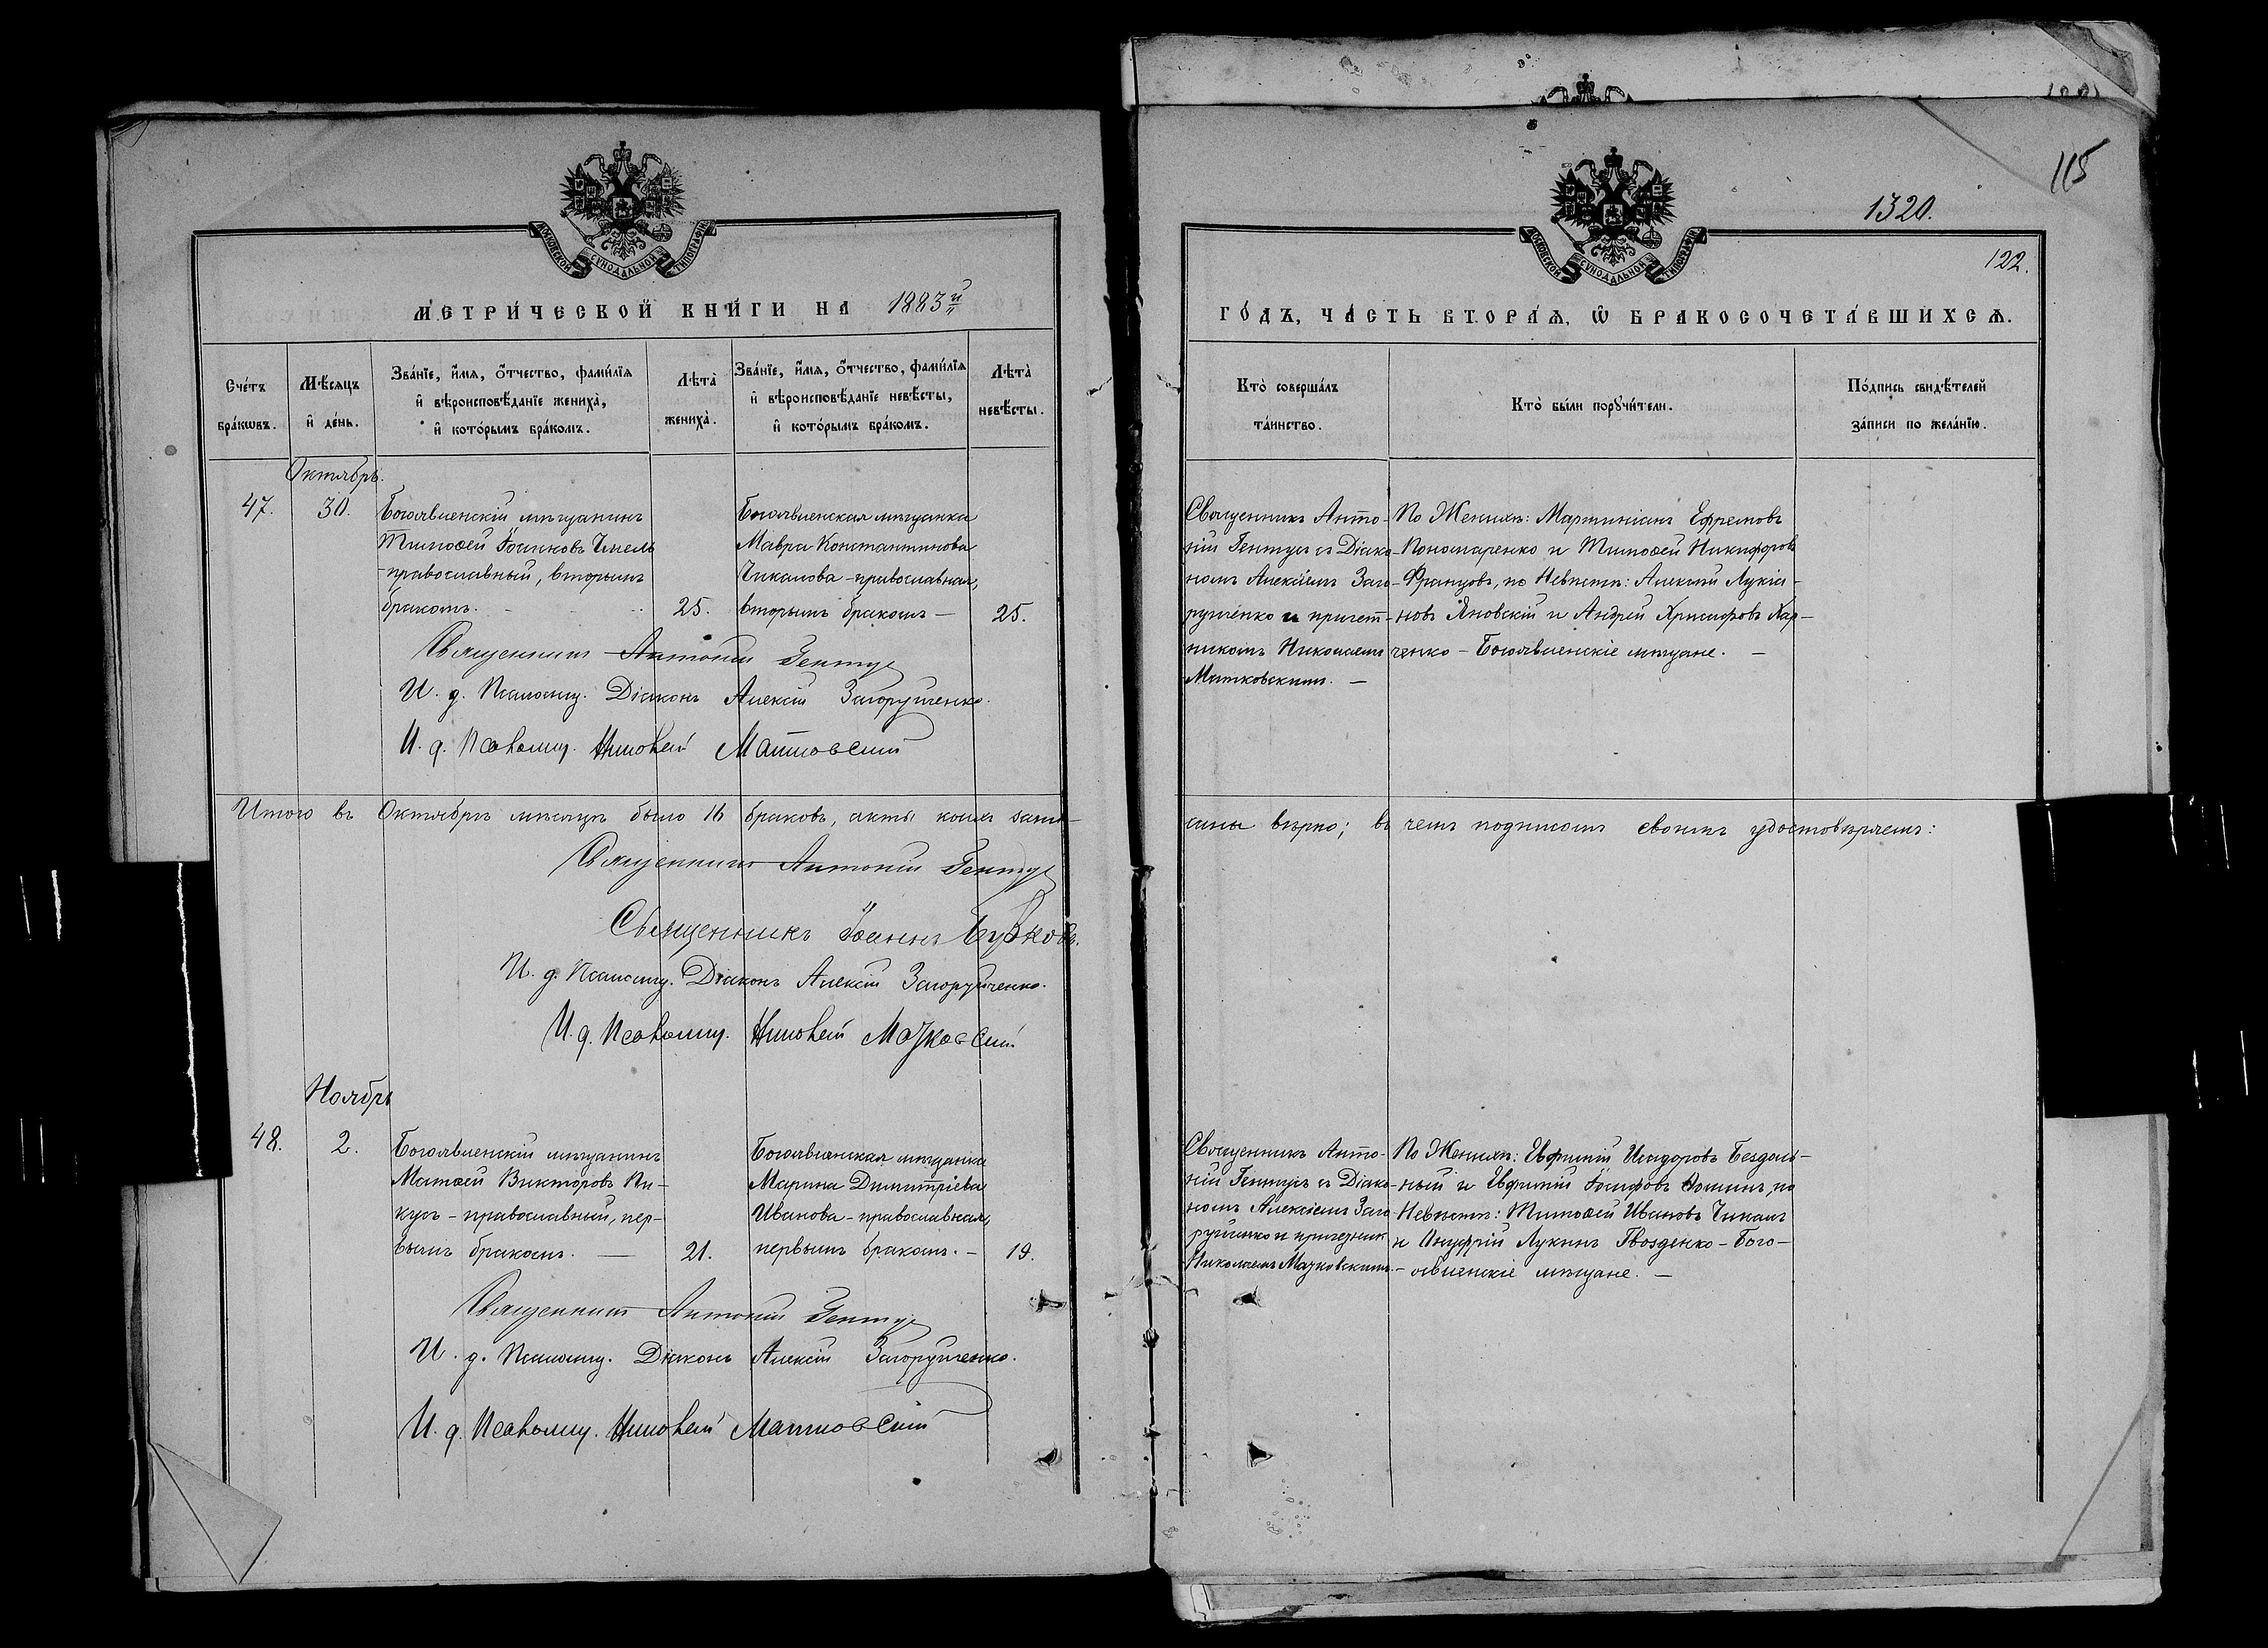 МОСКОВСКОЙ СѴНОДАЛЬНОЙ ТИПОГРАФІИ
МЕТРИ́ЧЕСКОЙ КНИ́ГИ НА 1883й
Сче́тъ бра́кωвъ.
Мѣ́сяцъ и҆ де́нь.
Зва́нїе, и҆́мя, ѻ҆́тчество, фами́лїя
и҆ вѣроисповѣ́данїе жениха̀,
и҆ кото́рымъ бра́комъ.
Лѣта̀ жениха̀.
Зва́нїе, и҆́мя, ѻ҆́тчество, фами́лїя
и҆ вѣроисповѣ́данїе невѣ́сты,
и҆ кото́рымъ бра́комъ.
Лѣта̀ невѣ́сты.
Октябрь.
47. 30.
Богоявленскій мѣщанинъ
Тимоѳей Іоанновъ
православный, вторымъ
бракомъ. 25.
Богоявленская мѣщанка
Мавра Константинова
Чикалова - православная,
вторымъ бракомъ — 25.
Священникъ Антоній Гентуъ
И. д. Псаломщ. Діаконъ Алексій Загоруйченко.
И. д. Псаломщ. Николай Матковскій
Итого въ Октябрѣ мѣсяцѣ было 16 браковъ, акты коихъ запи-
Священникъ Антоній Гентуъ
Священникъ Іоаннъ
И. д. Псаломщ. Діаконъ Алексій Загоруйченко.
И. д. Псаломщ. Николай Мачковскій
Ноябрь
48. 2.
Богоявленскій мѣщанинъ
Матѳей Викторовъ Пи-
кусъ - православный, пер-
вымъ бракомъ. — 21.
Богоявленская мѣщанка
Марина Димитріева
Иванова - православная,
первымъ бракомъ. — 19.
Священникъ Антоній Гентуъ
И. д. Псаломщ. Діаконъ Алексій Загоруйченко.
И. д. Псаломщ. Николай Матковскій
115
1320.
122.
МОСКОВСКОЙ СѴНОДАЛЬНОЙ ТИПОГРАФІИ
ГО́ДЪ, ЧА́СТЬ ВТОРА́Я, Ѡ҆ БРАКОСОЧЕТА́ВШИХСЯ.
Кто̀ соверша́лъ та́инство.
Кто̀ бы́ли порꙋчи́тели.
По́дпись свидѣ́телей за́писи по жела́нїю.
Священникъ Анто-
ній Гентуъ съ Діако-
номъ Алексіемъ Заго-
руйченко и причет-
никомъ Николаемъ
Матковскимъ. —
По Женихѣ: Мартиніанъ Ефремовъ
Пономаренко и Тимоѳей Никифоровъ
Францовъ, по Невѣстѣ: Алексѣй Лукіа-
новъ Яновскій и Андрей Христофоровъ Хар-
ченко - Богоявленскіе мѣщане. —
саны вѣрно; въ чемъ подписомъ своимъ удостовѣряемъ:
Священникъ Анто-
ній Гентуъ съ Діако-
номъ Алексіемъ Заго-
руйченко и причетник.
Николаемъ Мачковскимъ.
По Женихѣ: Евфимій Исидоровъ Бездоль-
ный и Евфимій Іосифовъ Ѳоминъ, по
Невѣстѣ: Тимоѳей Ивановъ Чикалъ
и Онуфрій Лукинъ Гвозденко - Бого-
явленскіе мѣщане. —